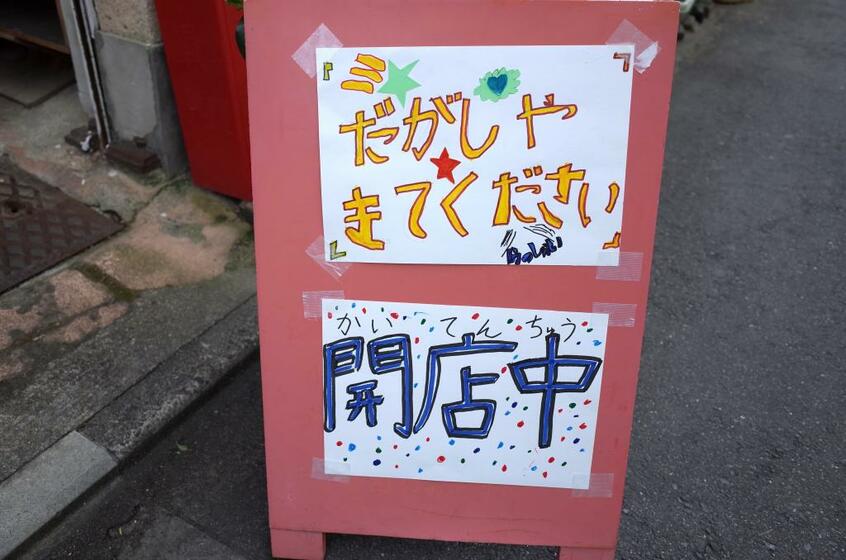 だがしや
きてください
らっしゃい
かいてんちゅう
開店中